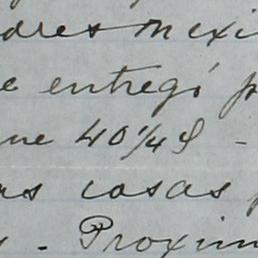 dres mexi
e entregó p
ne 40¼ $ -
rs casas p
. Proxim